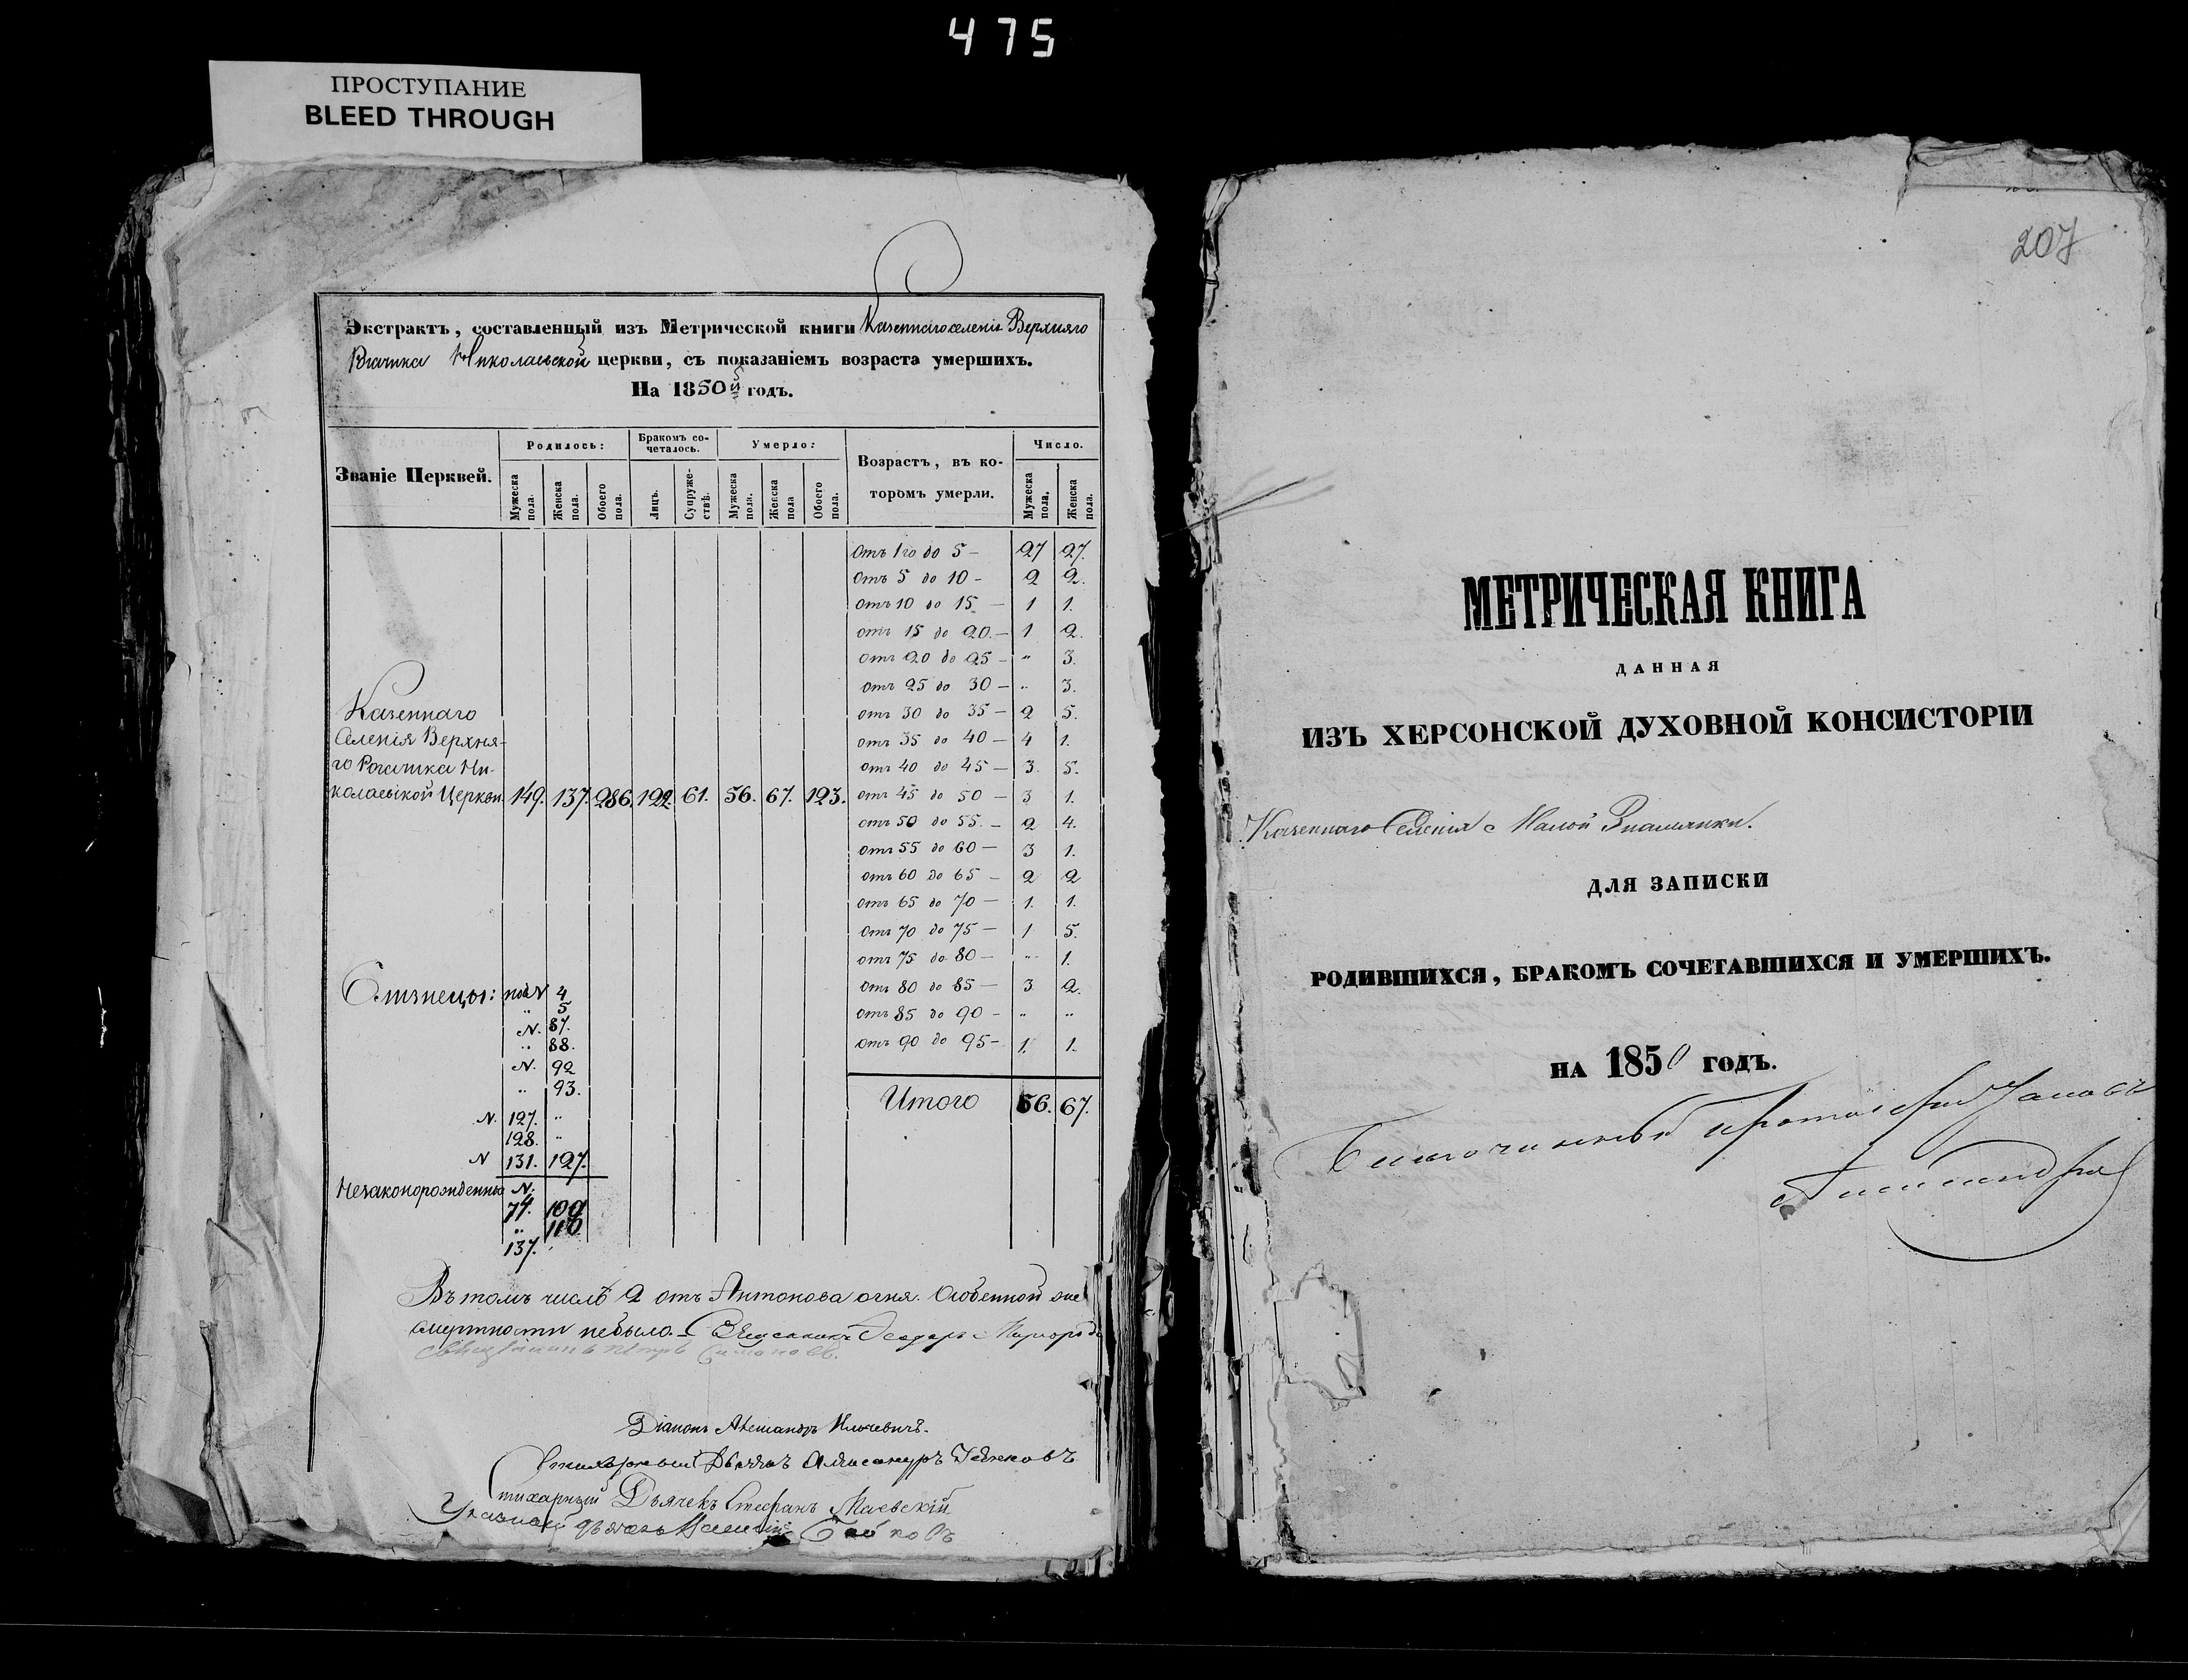 475
ПРОСТУПАНИЕ
BLEED THROUGH
Экстрактъ, составленный изъ Метрической книги Казеннаго селенія Верхняго
Рогачика Николаевской церкви, съ показаніемъ возраста умершихъ.
На 1850й годъ.
Званіе Церквей.
Родилось:
Бракомъ со-
четалось.
Умерло:
Возрастъ, въ ко-
торомъ умерли.
Число.
Мужеска пола.
Женска пола.
Обоего пола.
Лицъ.
Супруже-
ствъ.
Мужеска пола.
Женска пола
Обоего пола.
Мужеска пола.
Женска пола.
Отъ 1го до 5 – 27 27.
Отъ 5 до 10 – 2 2.
отъ 10 до 15 – 1 1.
отъ 15 до 20. – 1 2.
отъ 20 до 25 – " 3.
отъ 25 до 30 – " 3.
отъ 30 до 35 – 2 5.
отъ 35 до 40 – 4 1.
отъ 40 до 45 – 3. 5.
отъ 45 до 50 – 3 1.
отъ 50 до 55. – 2 4.
отъ 55 до 60 – 3 1.
отъ 60 до 65 – 2 2
отъ 65 до 70 – 1. 1.
отъ 70 до 75 – 1 5.
отъ 75 до 80 – " 1.
отъ 80 до 85 – 3 2.
отъ 85 до 90 – " "
отъ 90 до 95 – 1. 1.
Итого 56. 67.
Казеннаго
Селенія Верхня-
го Рогачика Ни-
колаевской Церкви. 149. 137. 286. 122. 61. 56. 67. 123.
Близнецы: подъ N 4
" 5
N. 87.
" 88.
N. 92
" 93.
N. 127. "
128. "
N 131. 127.
Незаконорожденные N.
74. 109
" 116
137.
Въ томъ числѣ 2 отъ Антонова огня. Особенной же
смертности небыло. – Священникъ Ѳеодоръ
Священникъ Петръ
Діаконъ Александръ
Стихарный Дьячекъ Александръ
Стихарный Дьячекъ Стефанъ Маевскій
Указный
207
МЕТРИЧЕСКАЯ КНИГА
ДАННАЯ
ИЗЪ ХЕРСОНСКОЙ ДУХОВНОЙ КОНСИСТОРІИ
Казеннаго Селенія с Малой Знаменки.
ДЛЯ ЗАПИСКИ
РОДИВШИХСЯ, БРАКОМЪ СОЧЕТАВШИХСЯ И УМЕРШИХЪ.
НА 1850 ГОДЪ.
Благочинный протоіерей